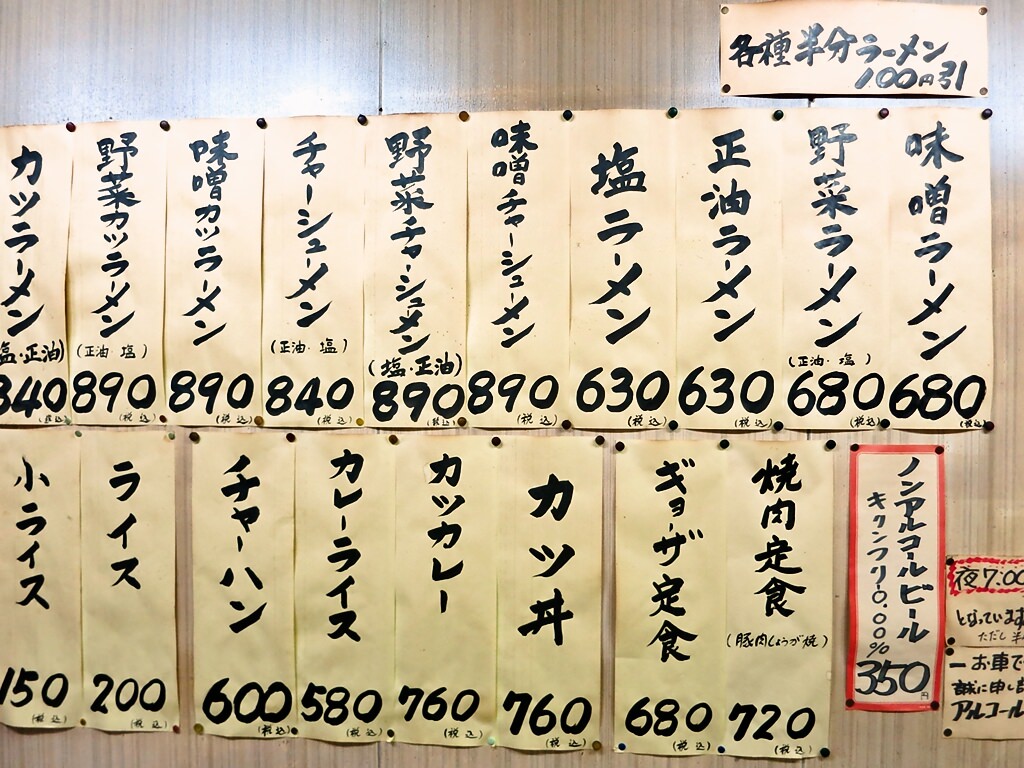 各種半分ラーメン
100円引
味噌ラーメン
680
(税込)
野菜ラーメン
(正油・塩)
680
(税込)
正油ラーメン
630
(税込)
塩ラーメン
630
(税込)
味噌チャーシューメン
890
(税込)
野菜チャーシューメン
(塩・正油)
890
(税込)
チャーシューメン
(正油・塩)
840
(税込)
味噌カツラーメン
890
(税込)
野菜カツラーメン
(正油・塩)
890
(税込)
カツラーメン
塩・正油)
840
(税込)
ノンアルコールビール
キリンフリー0.00%
350円
焼肉定食
(豚肉しょうが焼)
720
(税込)
ギョーザ定食
680
(税込)
カツ丼
760
(税込)
カツカレー
760
(税込)
カレーライス
580
(税込)
チャーハン
600
(税込)
ライス
200
(税込)
小ライス
150
(税込)
夜7:00
となっています
ただし
一お車で
誠に申し
アルコール